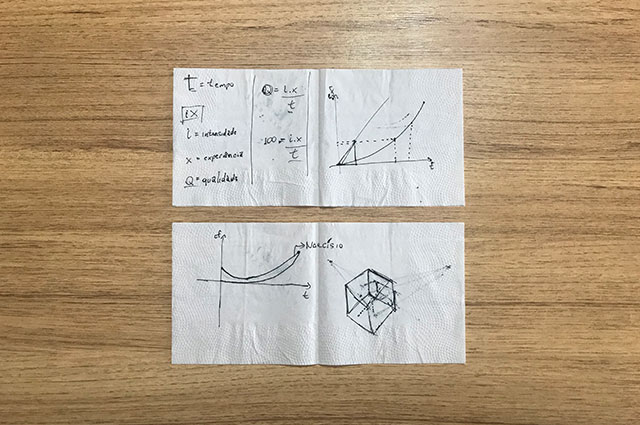 t = tempo
ix
i = intensidade
x = experiência
Q = qualidade
Q = i.x
t
100 = i.x
t
t
Narcísio
t